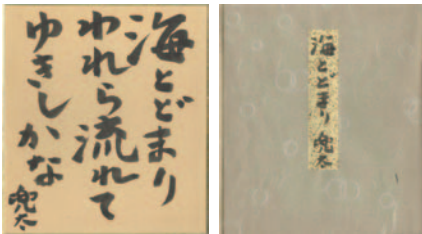 海とどまり
われら流れて
ゆきしかな
兜太
海とどまり 兜太